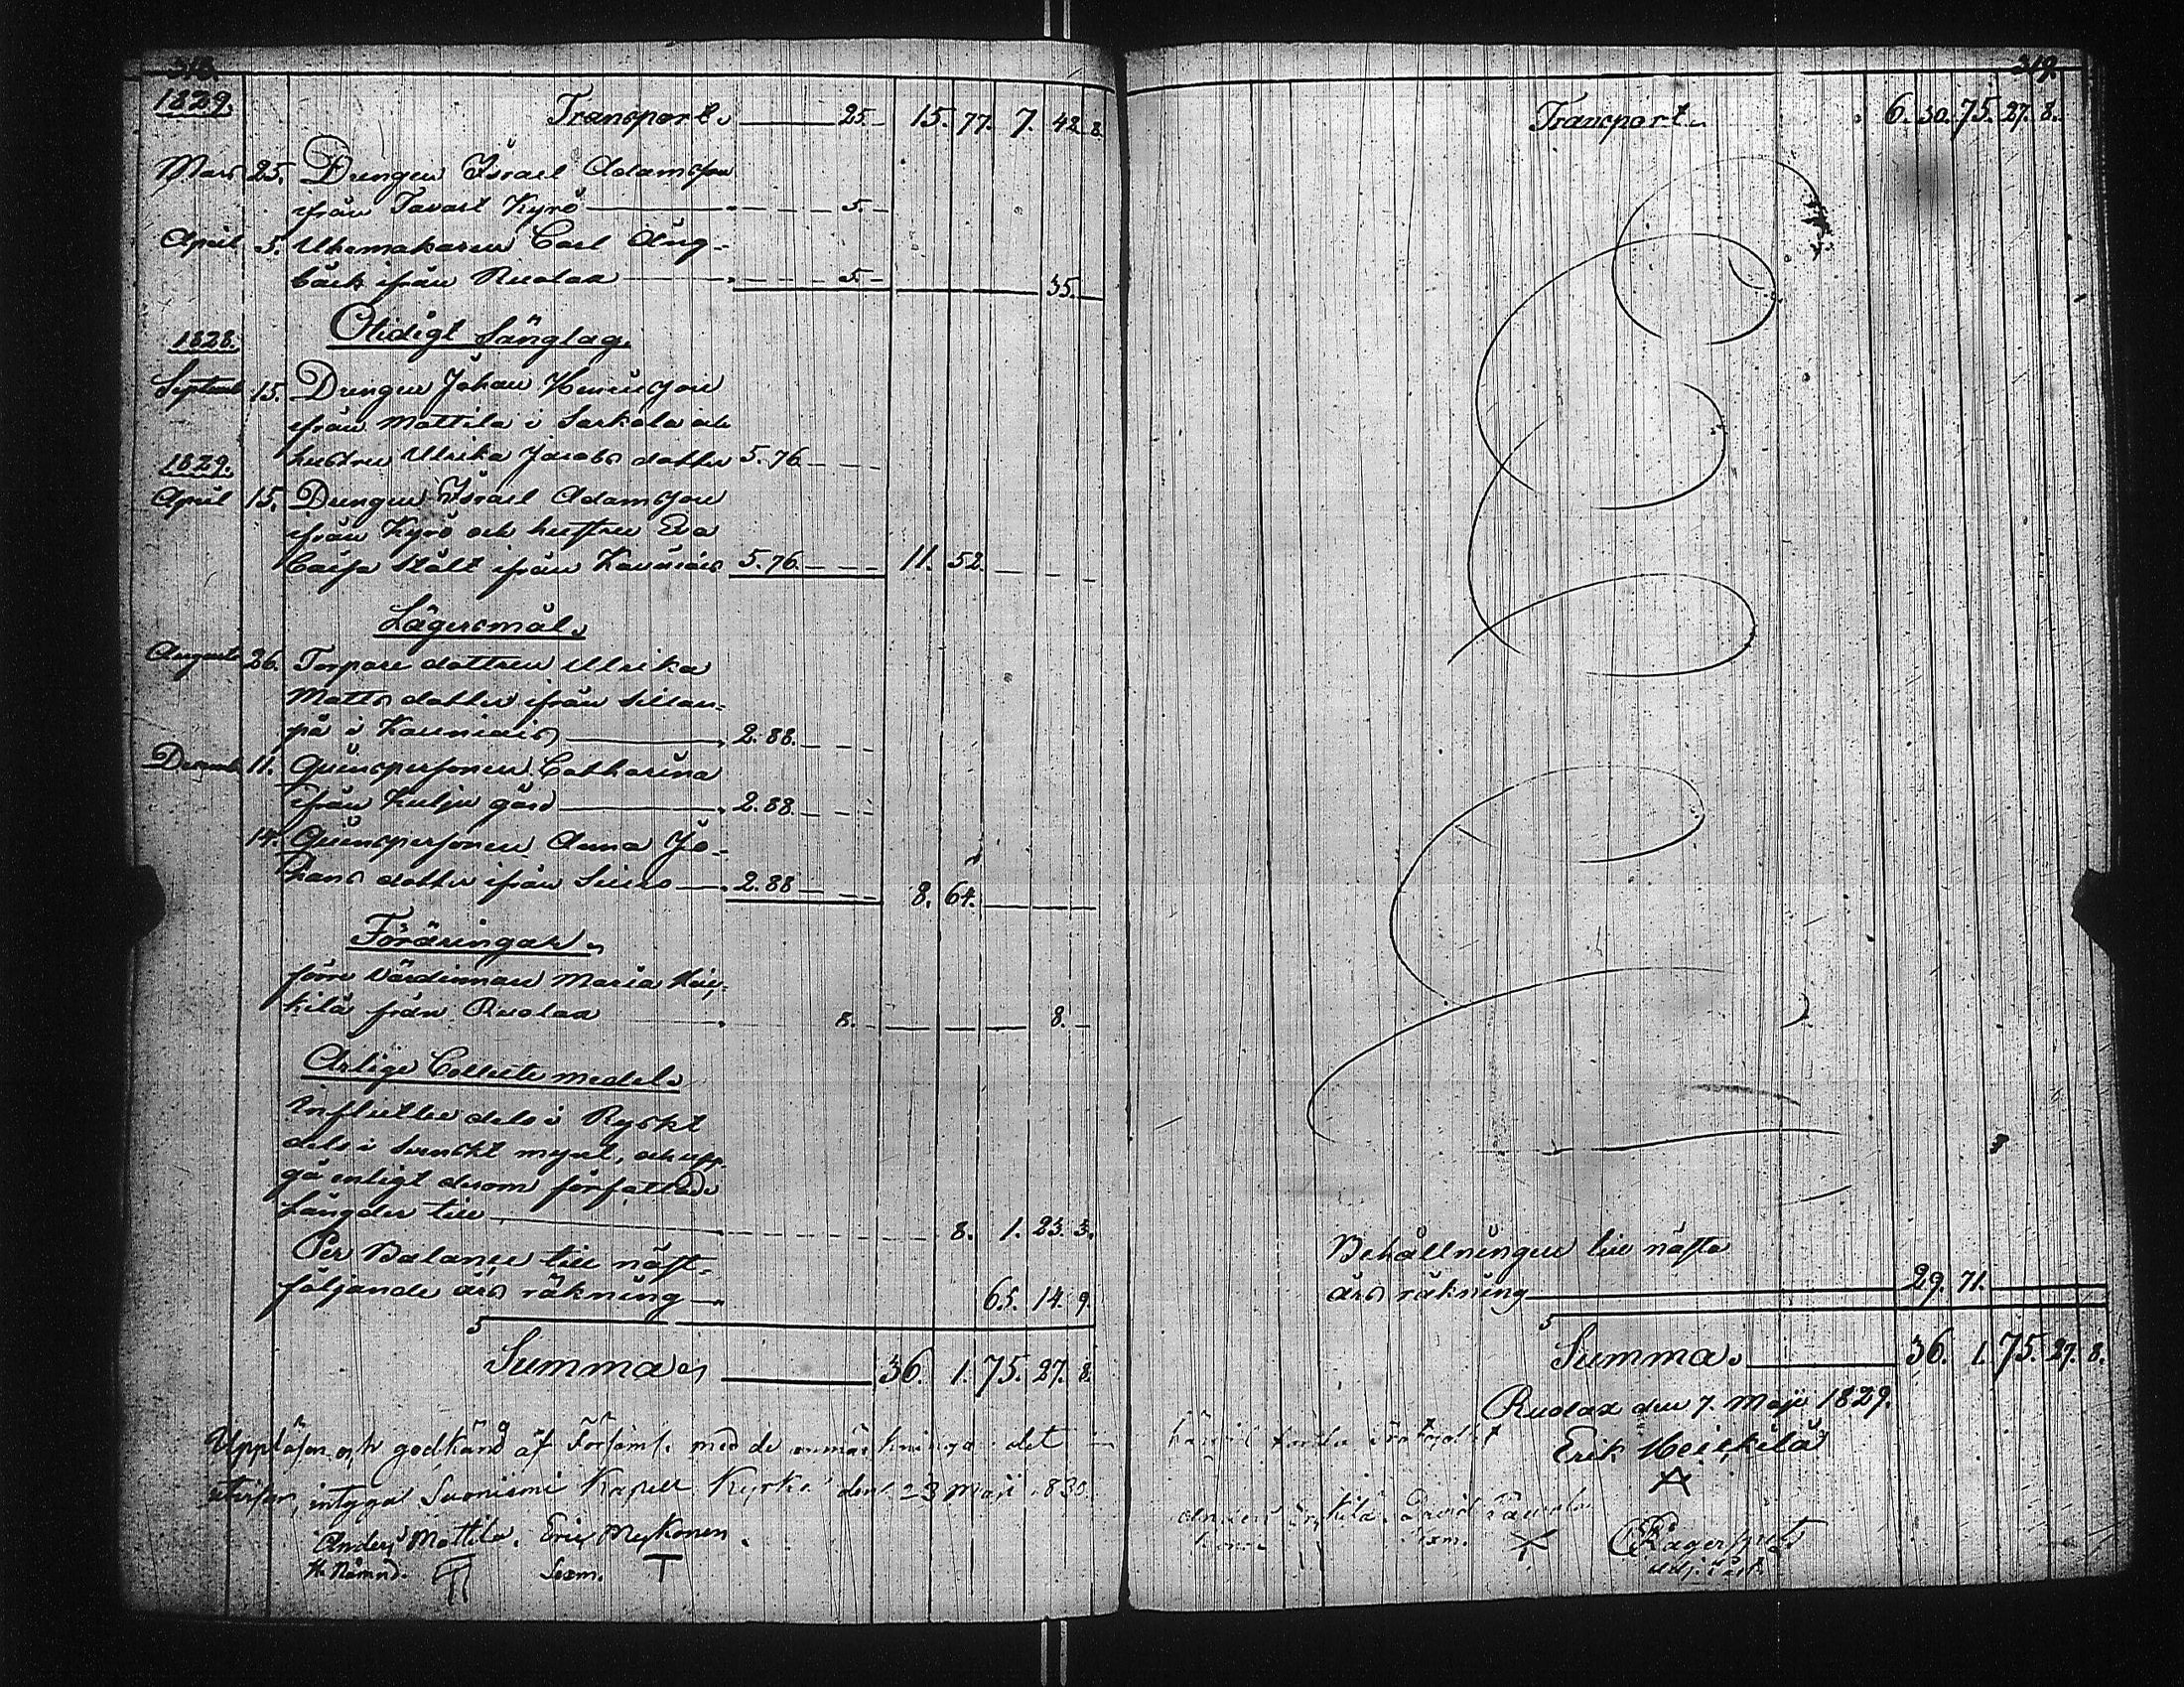 318.
1829.
Transport. 25. 15. 77. 7. 42. 8.
Mars 25. Drengen Israel Adamsson
ifrån Tavast Kyrö 5.
April 5. Uhrmakaren Carl Äng-
bäck ifrån Ruolax 5. 35.
1828. Otidigt Sänglag.
Septemb 15. Drengen Johan Henricsson
ifrån Mattila i Sarkola och
1829. hustru Ulrika Jacobs dotter 5. 76.
April 15. Drengen Israel Adamsson
ifrån Kyrö och hustru Eva
Caisa Stålt ifrån 5. 76. 11. 52.
Lägersmål.
Augusti 26. Torpare dottren Ulrika
Matts dotter ifrån Sillan-
pä i Kauniais 2. 88.
Decemb 11. Qvinspersonen Catharina
ifrån Kulju gård 2. 88.
14. Qvinspersonen Anna Jo-
hans dotter ifrån 2. 88. 8. 64.
Föräringar.
förre Värdinnan Maria Hei-
kilä från Ruolax 8. 8.
Årlige Collecte medel.
Influtlne dels i Ryskt
dels i Svenskt mynt, och upp-
gå enligt derom författade
Längder till 8. 1. 23. 3.
Per Balance till näst-
följande års räkning 65. 14. 9.
Summa 36. 1. 75. 27. 8.
Uppläsen och godkänd af Församl. med de anmärkningar det
intygat Suoniemi Kapell Kyrka den 23 Maji 1830.
Anders Mattila. Eric Mykonen.
N. Nämnd. Sexm.
319.
Transport. 6. 30. 75. 27. 8.
Behållningen till nästa
års räkning 29. 71.
Summa. 36. 1. 75. 27. 8.
Ruolax den 7. Maji 1829.
Erik Heikkilä
Anders
Sexm.